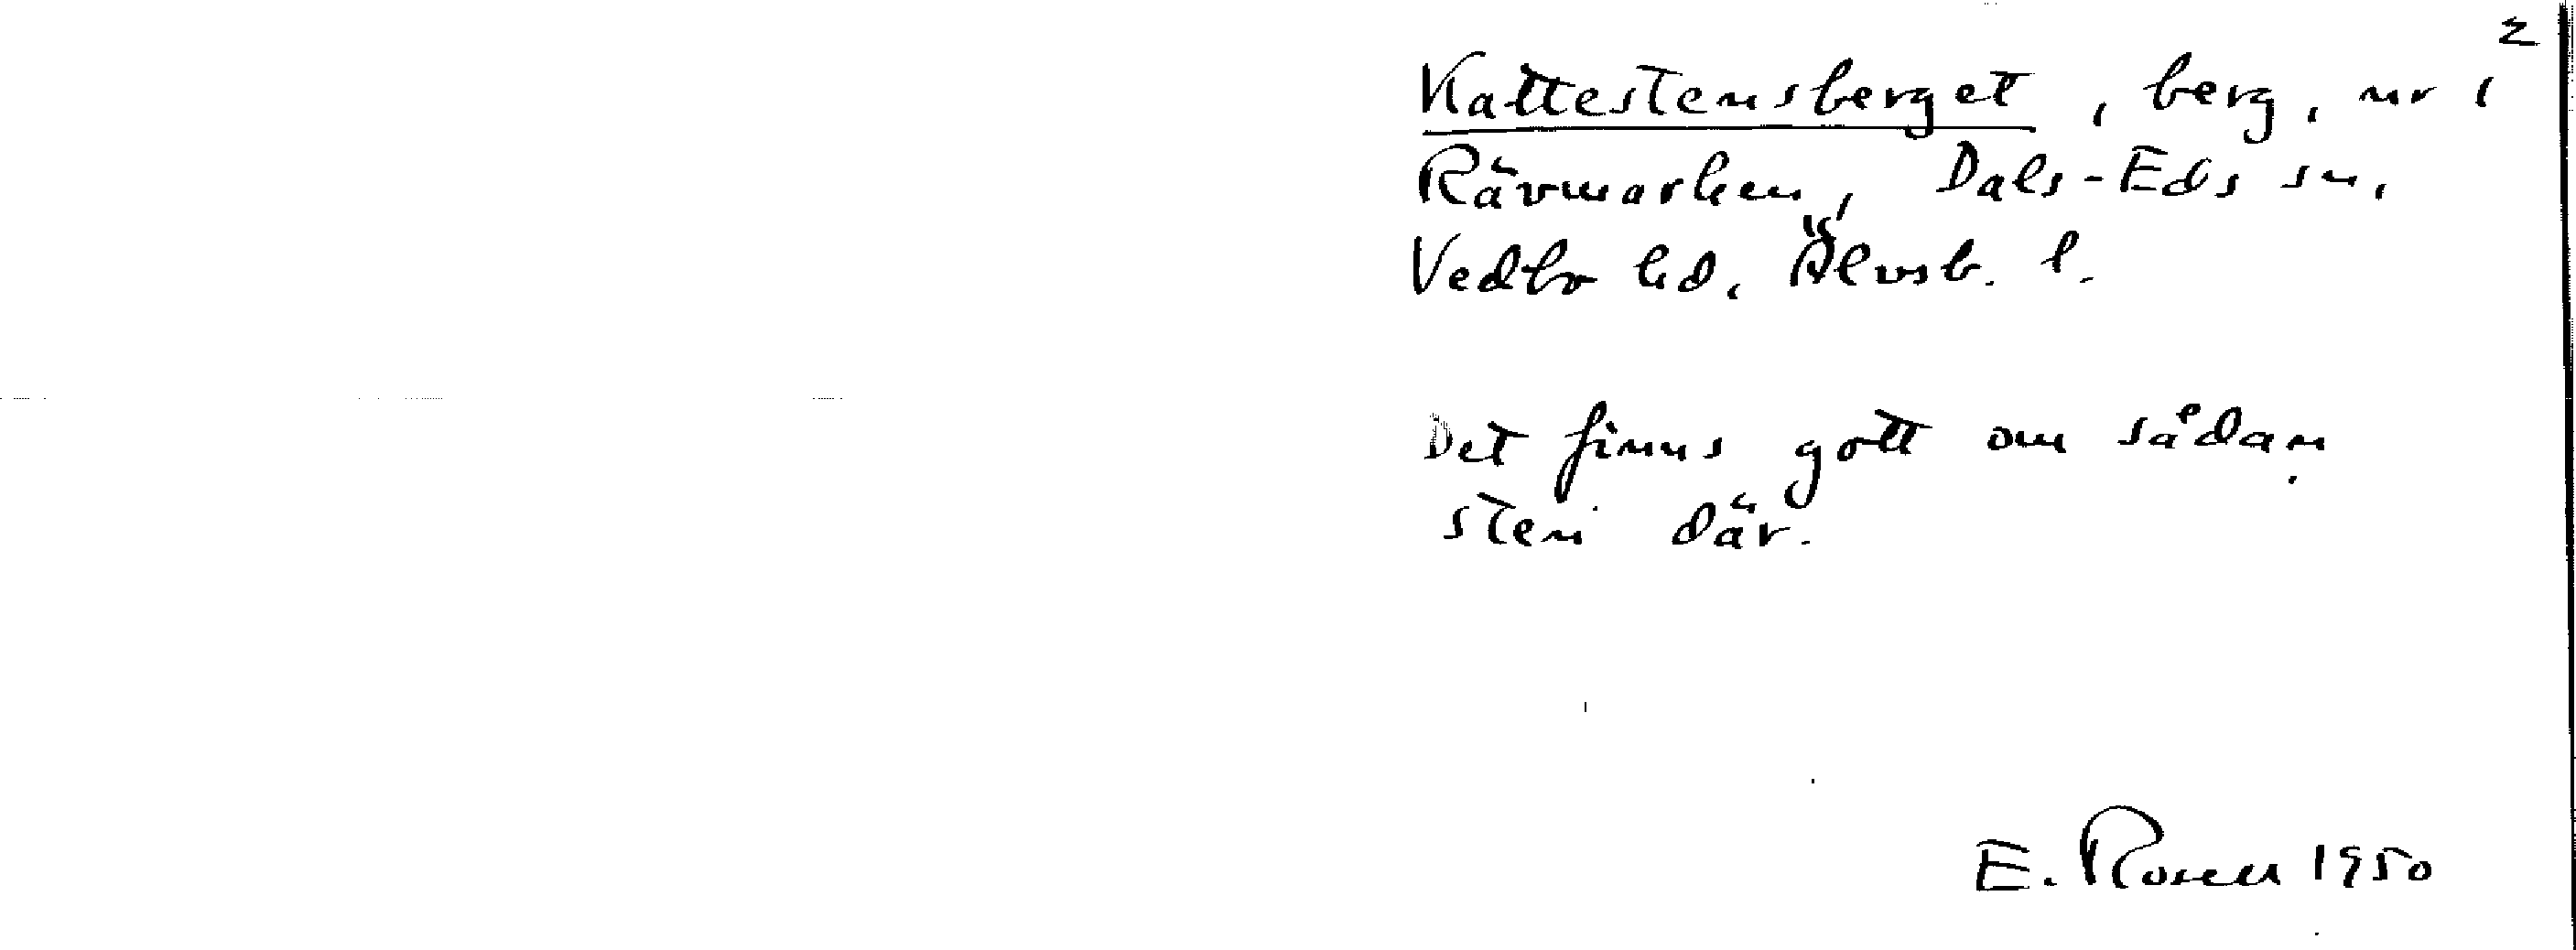 2
Kattestensberget, berg, nr 1
Rävmarken, Dals-Eds sn,
Vedbo hd, Älvsb. l.
Det finns gott om sådan
sten där.
E. Rosell 1950